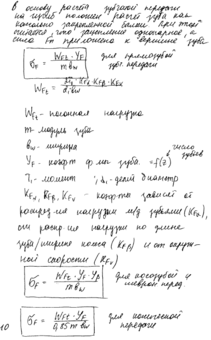 В основу расчёта зубчатой передачи
на изгиб положен расчёт зуба как
консольно защемлённой балки. При этом
считается, что зацепление однопарное, а
сила Fn приложена к вершине зуба
σF = WFt · YF / m для прямозубой
зубч. передачи
WFt = KFα · KFβ · KFν / d1 bw
WFt - погонная нагрузка
m - модуль зуба
bw - ширина число
зубьев
YF - коэфф. формы зуба. = f(z)
T1 - момент ; d1 - делит. диаметр
KFα, KFβ, KFν - коэфф-ты зависят от
распред-ия нагрузки м/д зубьями (KFα),
от распред-ия нагрузки по длине
зуба/ширине колеса (KFβ) и от окруж-
ной скорости (KFν)
σF = WFt · YF · Yβ / m bw для косозубой и
шеврон. перед.
σF = WFt · YF / 0,85 m bw для конической
передачи
10